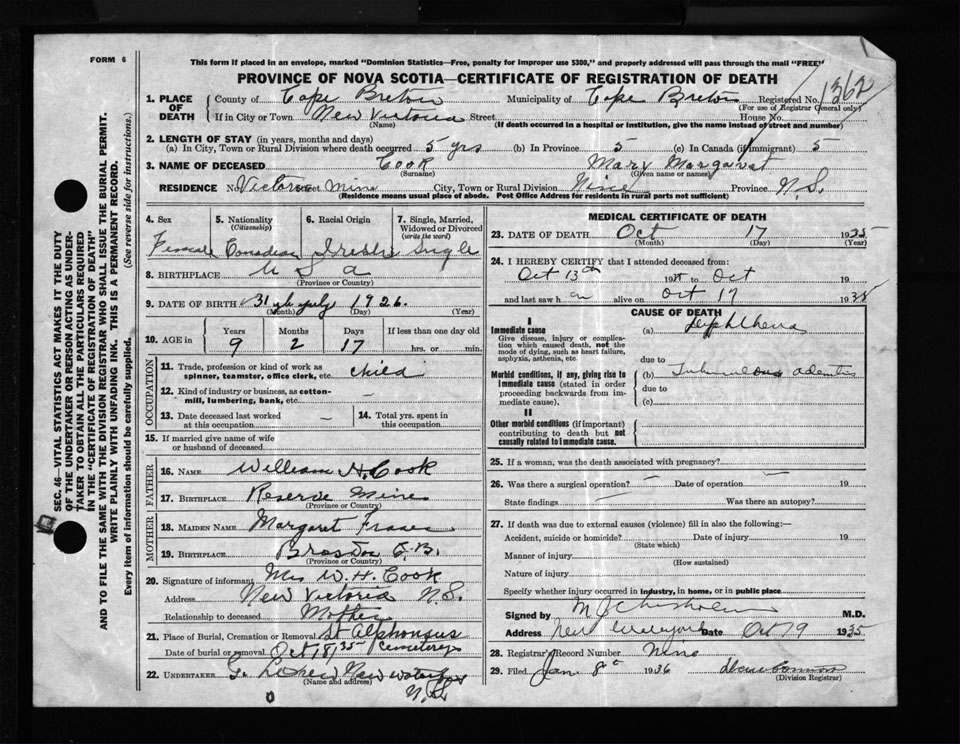 FORM 6
This form if placed in an envelope, marked "Dominion Statistics—Free, penalty for improper use $300," and properly addressed will pass through the mail "FREE"
PROVINCE OF NOVA SCOTIA—CERTIFICATE OF REGISTRATION OF DEATH
SEC. 46—VITAL STATISTICS ACT MAKES IT THE DUTY
OF THE UNDERTAKER OR PERSON ACTING AS UNDER-
TAKER TO OBTAIN ALL THE PARTICULARS REQUIRED
IN THE "CERTIFICATE OF REGISTRATION OF DEATH"
AND TO FILE THE SAME WITH THE DIVISION REGISTRAR WHO SHALL ISSUE THE BURIAL PERMIT.
WRITE PLAINLY WITH UNFADING INK. THIS IS A PERMANENT RECORD.
Every item of Information should be carefully supplied. (See reverse side for instructions.)
1. PLACE OF DEATH
County of Cape Breton Municipality of Cape Breton Registered No. 1362
(For use of Registrar General only)
If in City or Town New Victoria Street House No.
(Name) (If death occurred in a hospital or institution, give the name instead of street and number)
2. LENGTH OF STAY (in years, months and days)
(a) In City, Town or Rural Division where death occurred 5 yrs (b) In Province 5 (c) In Canada (if immigrant) 5
3. NAME OF DECEASED Cook Mary Margaret
(Surname) (Given name or names)
RESIDENCE No. Victoria Street Mine City, Town or Rural Division Province N.S.
(Residence means usual place of abode. Post Office Address for residents in rural parts not sufficient)
4. Sex 5. Nationality (Citizenship) 6. Racial Origin 7. Single, Married, Widowed or Divorced (write the word)
Female Canadian Single
8. BIRTHPLACE U S A
(Province or Country)
9. DATE OF BIRTH 31 July 1926.
(Month) (Day) (Year)
10. AGE in Years Months Days If less than one day old
9 2 17 hrs. or min.
OCCUPATION
11. Trade, profession or kind of work as spinner, teamster, office clerk, etc. child
12. Kind of industry or business, as cotton-mill, lumbering, bank, etc. —
13. Date deceased last worked at this occupation —
14. Total yrs. spent in this occupation
15. If married give name of wife or husband of deceased
FATHER
16. NAME William H. Cook
17. BIRTHPLACE Reserve Mine
(Province or Country)
MOTHER
18. MAIDEN NAME Margaret Fraser
19. BIRTHPLACE C.B.
(Province or Country)
20. Signature of informant Mrs W. H. Cook
Address New Victoria N.S.
Relationship to deceased Mother
21. Place of Burial, Cremation or Removal St Alphonsus Cemetery
Date of burial or removal Oct 18/35
22. UNDERTAKER New Waterford N.S.
(Name and address)
MEDICAL CERTIFICATE OF DEATH
23. DATE OF DEATH Oct 17 1935
(Month) (Day) (Year)
24. I HEREBY CERTIFY that I attended deceased from:
Oct 13th 1935 to Oct 19
and last saw h alive on Oct 17 1935
CAUSE OF DEATH
I
Immediate cause (a) Diphtheria
Give disease, injury or complication which caused death, not the mode of dying, such as heart failure, asphyxia, asthenia, etc.
due to
Morbid conditions, if any, giving rise to Immediate cause (stated in order proceeding backwards from immediate cause).
(b) Tuberculous adenitis
due to
(c)
II
Other morbid conditions (if important) contributing to death but not causally related to Immediate cause.
25. If a woman, was the death associated with pregnancy? —
26. Was there a surgical operation? — Date of operation — 19
State findings — Was there an autopsy?
27. If death was due to external causes (violence) fill in also the following:—
Accident, suicide or homicide? Date of injury 19
(State which)
Manner of injury
(How sustained)
Nature of injury
Specify whether injury occurred in industry, in home, or in public place
Signed by M.D.
Address New Waterford Date Oct 19 1935
28. Registrar's Record Number Nine
29. Filed Jan. 8th 1936
(Division Registrar)